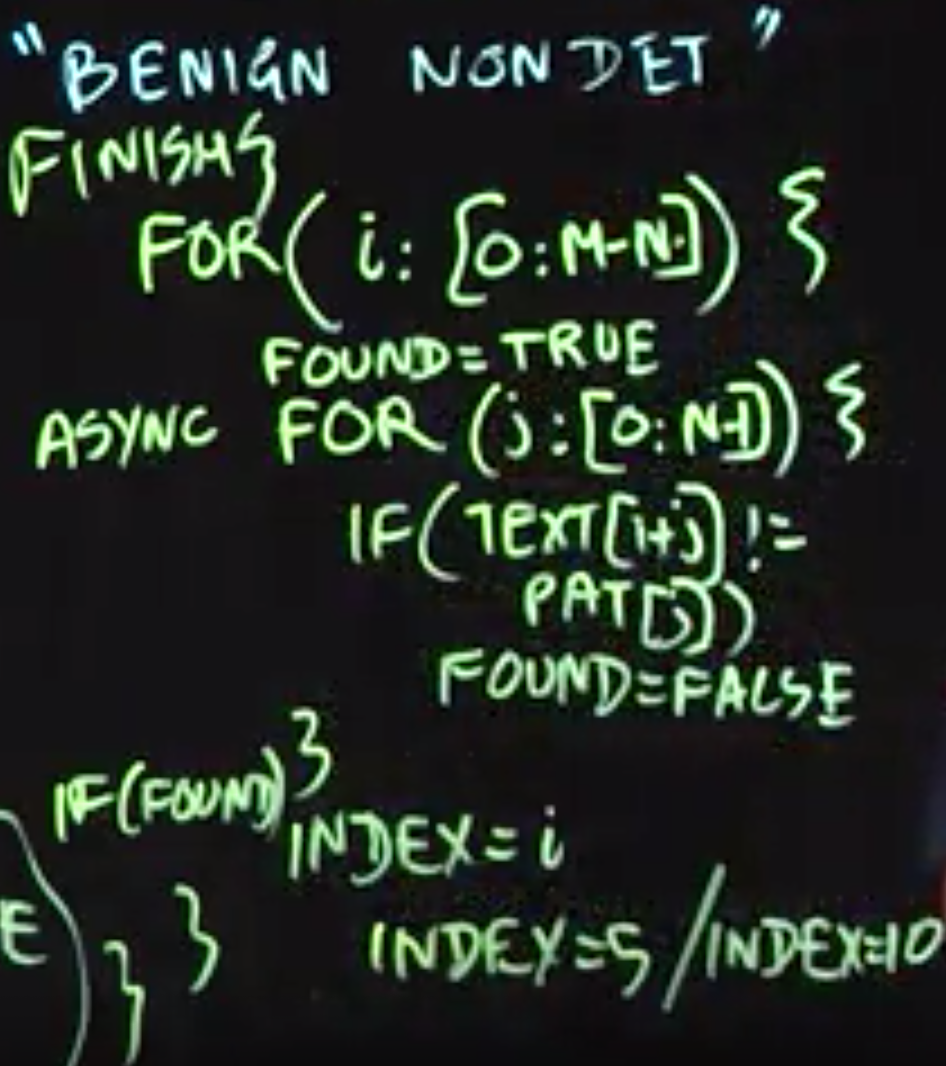 "BENIGN NONDET"
FINISH{
FOR(i: [0:M-N]) {
FOUND=TRUE
ASYNC FOR (j:[0:N-1]) {
IF(TEXT[i+j] !=
PAT[j])
FOUND=FALSE
}
IF(FOUND)
INDEX=i
E
} }
INDEX=5 / INDEX=10